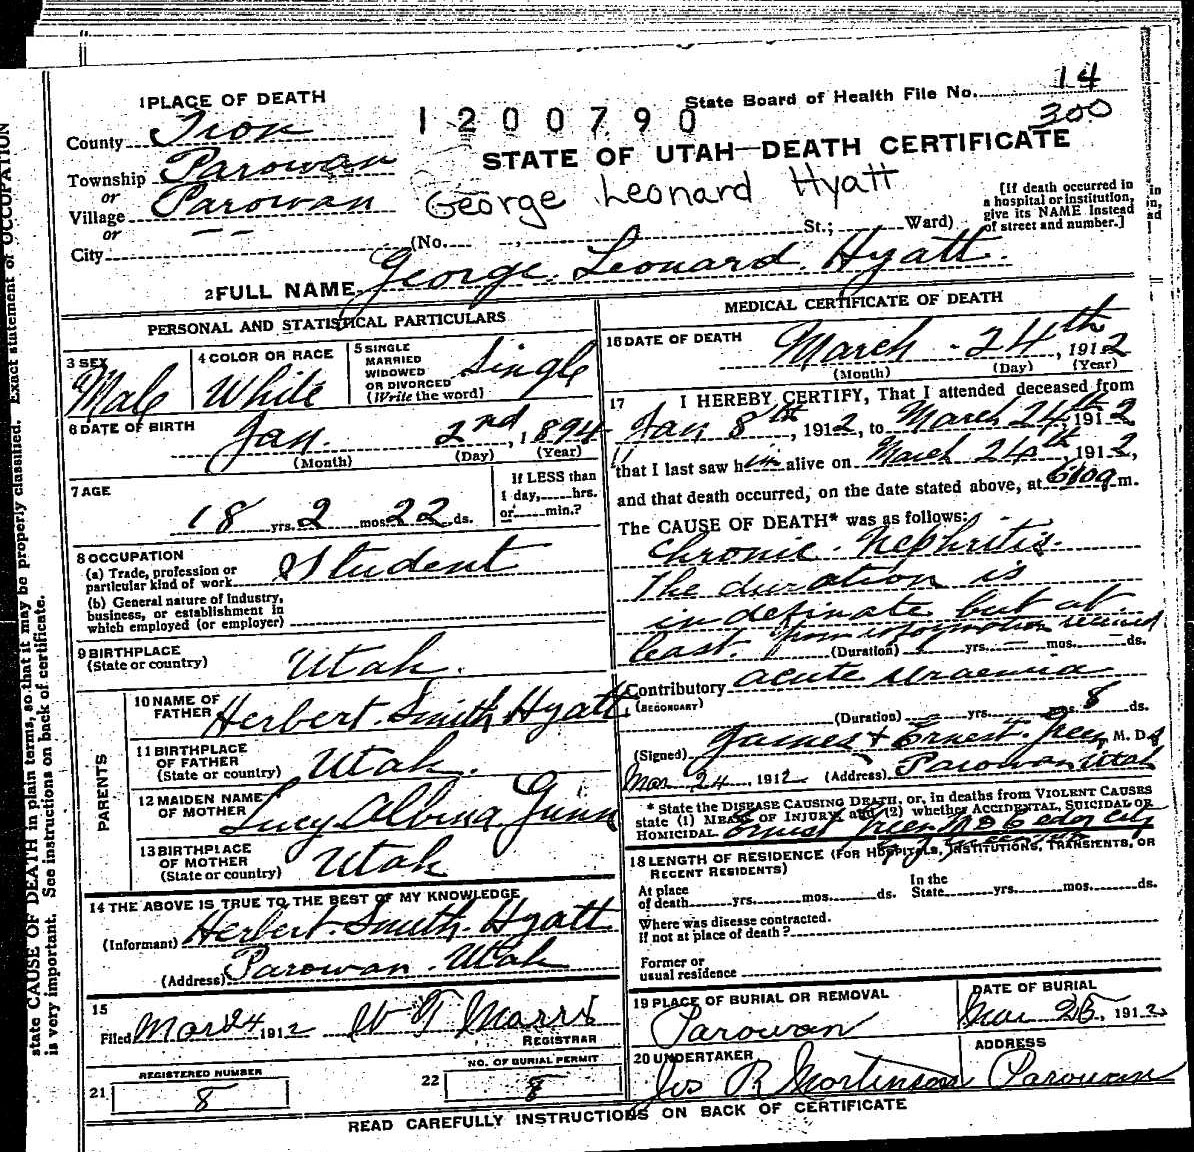 1 PLACE OF DEATH
State Board of Health File No. 14
County Iron
1200790
300
Township Parowan
STATE OF UTAH—DEATH CERTIFICATE
or
Village Parowan
George Leonard Hyatt
[If death occurred in a hospital or institution, give its NAME instead of street and number.]
or
City
(No. St.; Ward)
2 FULL NAME George Leonard Hyatt.
PERSONAL AND STATISTICAL PARTICULARS
3 SEX
Male
4 COLOR OR RACE
White
5 SINGLE
MARRIED
WIDOWED
OR DIVORCED
(Write the word)
Single
6 DATE OF BIRTH
Jan. 2nd, 1894
(Month) (Day) (Year)
7 AGE
18 yrs. 2 mos. 22 ds.
If LESS than
1 day, hrs.
or min.?
8 OCCUPATION
(a) Trade, profession or
particular kind of work
Student
(b) General nature of industry,
business, or establishment in
which employed (or employer)
9 BIRTHPLACE
(State or country)
Utah.
PARENTS
10 NAME OF
FATHER
Herbert Smith Hyatt
11 BIRTHPLACE
OF FATHER
(State or country)
Utah.
12 MAIDEN NAME
OF MOTHER
Lucy Albina Gunn
13 BIRTHPLACE
OF MOTHER
(State or country)
Utah
14 THE ABOVE IS TRUE TO THE BEST OF MY KNOWLEDGE
(Informant) Herbert Smith Hyatt
(Address) Parowan Utah
15
Filed Mar 24 1912
REGISTRAR
21 REGISTERED NUMBER
8
22 NO. OF BURIAL PERMIT
8
MEDICAL CERTIFICATE OF DEATH
16 DATE OF DEATH
March 24th, 1912
(Month) (Day) (Year)
17 I HEREBY CERTIFY, That I attended deceased from
Jan 8th, 1912, to March 24th 1912
that I last saw him alive on March 24th, 1912,
and that death occurred, on the date stated above, at m.
The CAUSE OF DEATH* was as follows:
Chronic Nephritis.
The duration is
indefinate but at
least. from information received
(Duration) yrs. mos. ds.
Contributory acute uraemia
(SECONDARY)
(Duration) yrs. mos. 8 ds.
(Signed) James + Ernest Green M. Ds
Mar 24 1912 (Address) Parowan Utah
* State the DISEASE CAUSING DEATH, or, in deaths from VIOLENT CAUSES
state (1) MEANS OF INJURY; and (2) whether ACCIDENTAL, SUICIDAL or
HOMICIDAL. Ernest Green MD Cedar City
18 LENGTH OF RESIDENCE (FOR HOSPITALS, INSTITUTIONS, TRANSIENTS, OR
RECENT RESIDENTS)
At place
of death yrs. mos. ds.
In the
State yrs. mos. ds.
Where was disease contracted.
If not at place of death?
Former or
usual residence
19 PLACE OF BURIAL OR REMOVAL
Parowan
DATE OF BURIAL
Mar 25, 1912
20 UNDERTAKER
Jos R Mortensen
ADDRESS
Parowan
READ CAREFULLY INSTRUCTIONS ON BACK OF CERTIFICATE
state CAUSE OF DEATH in plain terms, so that it may be properly classified. Exact statement of OCCUPATION
is very important. See instructions on back of certificate.